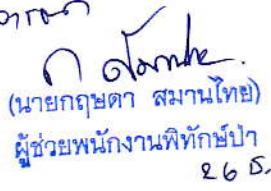 (นายกฤษดา สมานไทย)
ผู้ช่วยพนักงานพิทักษ์ป่า
26 ธ.